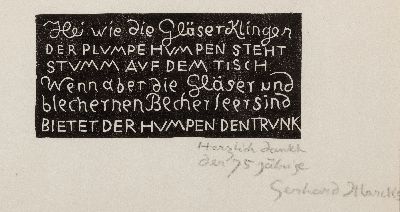 Hei wie die Gläser Klingen
DER PLVMPE HVMPEN STEHT
STVMM AVF DEM TISCH
Wenn aber die Gläser und
blechernen Becher leer sind
BIETET DER HVMPEN DEN TRVNK
Herzlich dankt
der 75 jährige
Gerhard Marcks